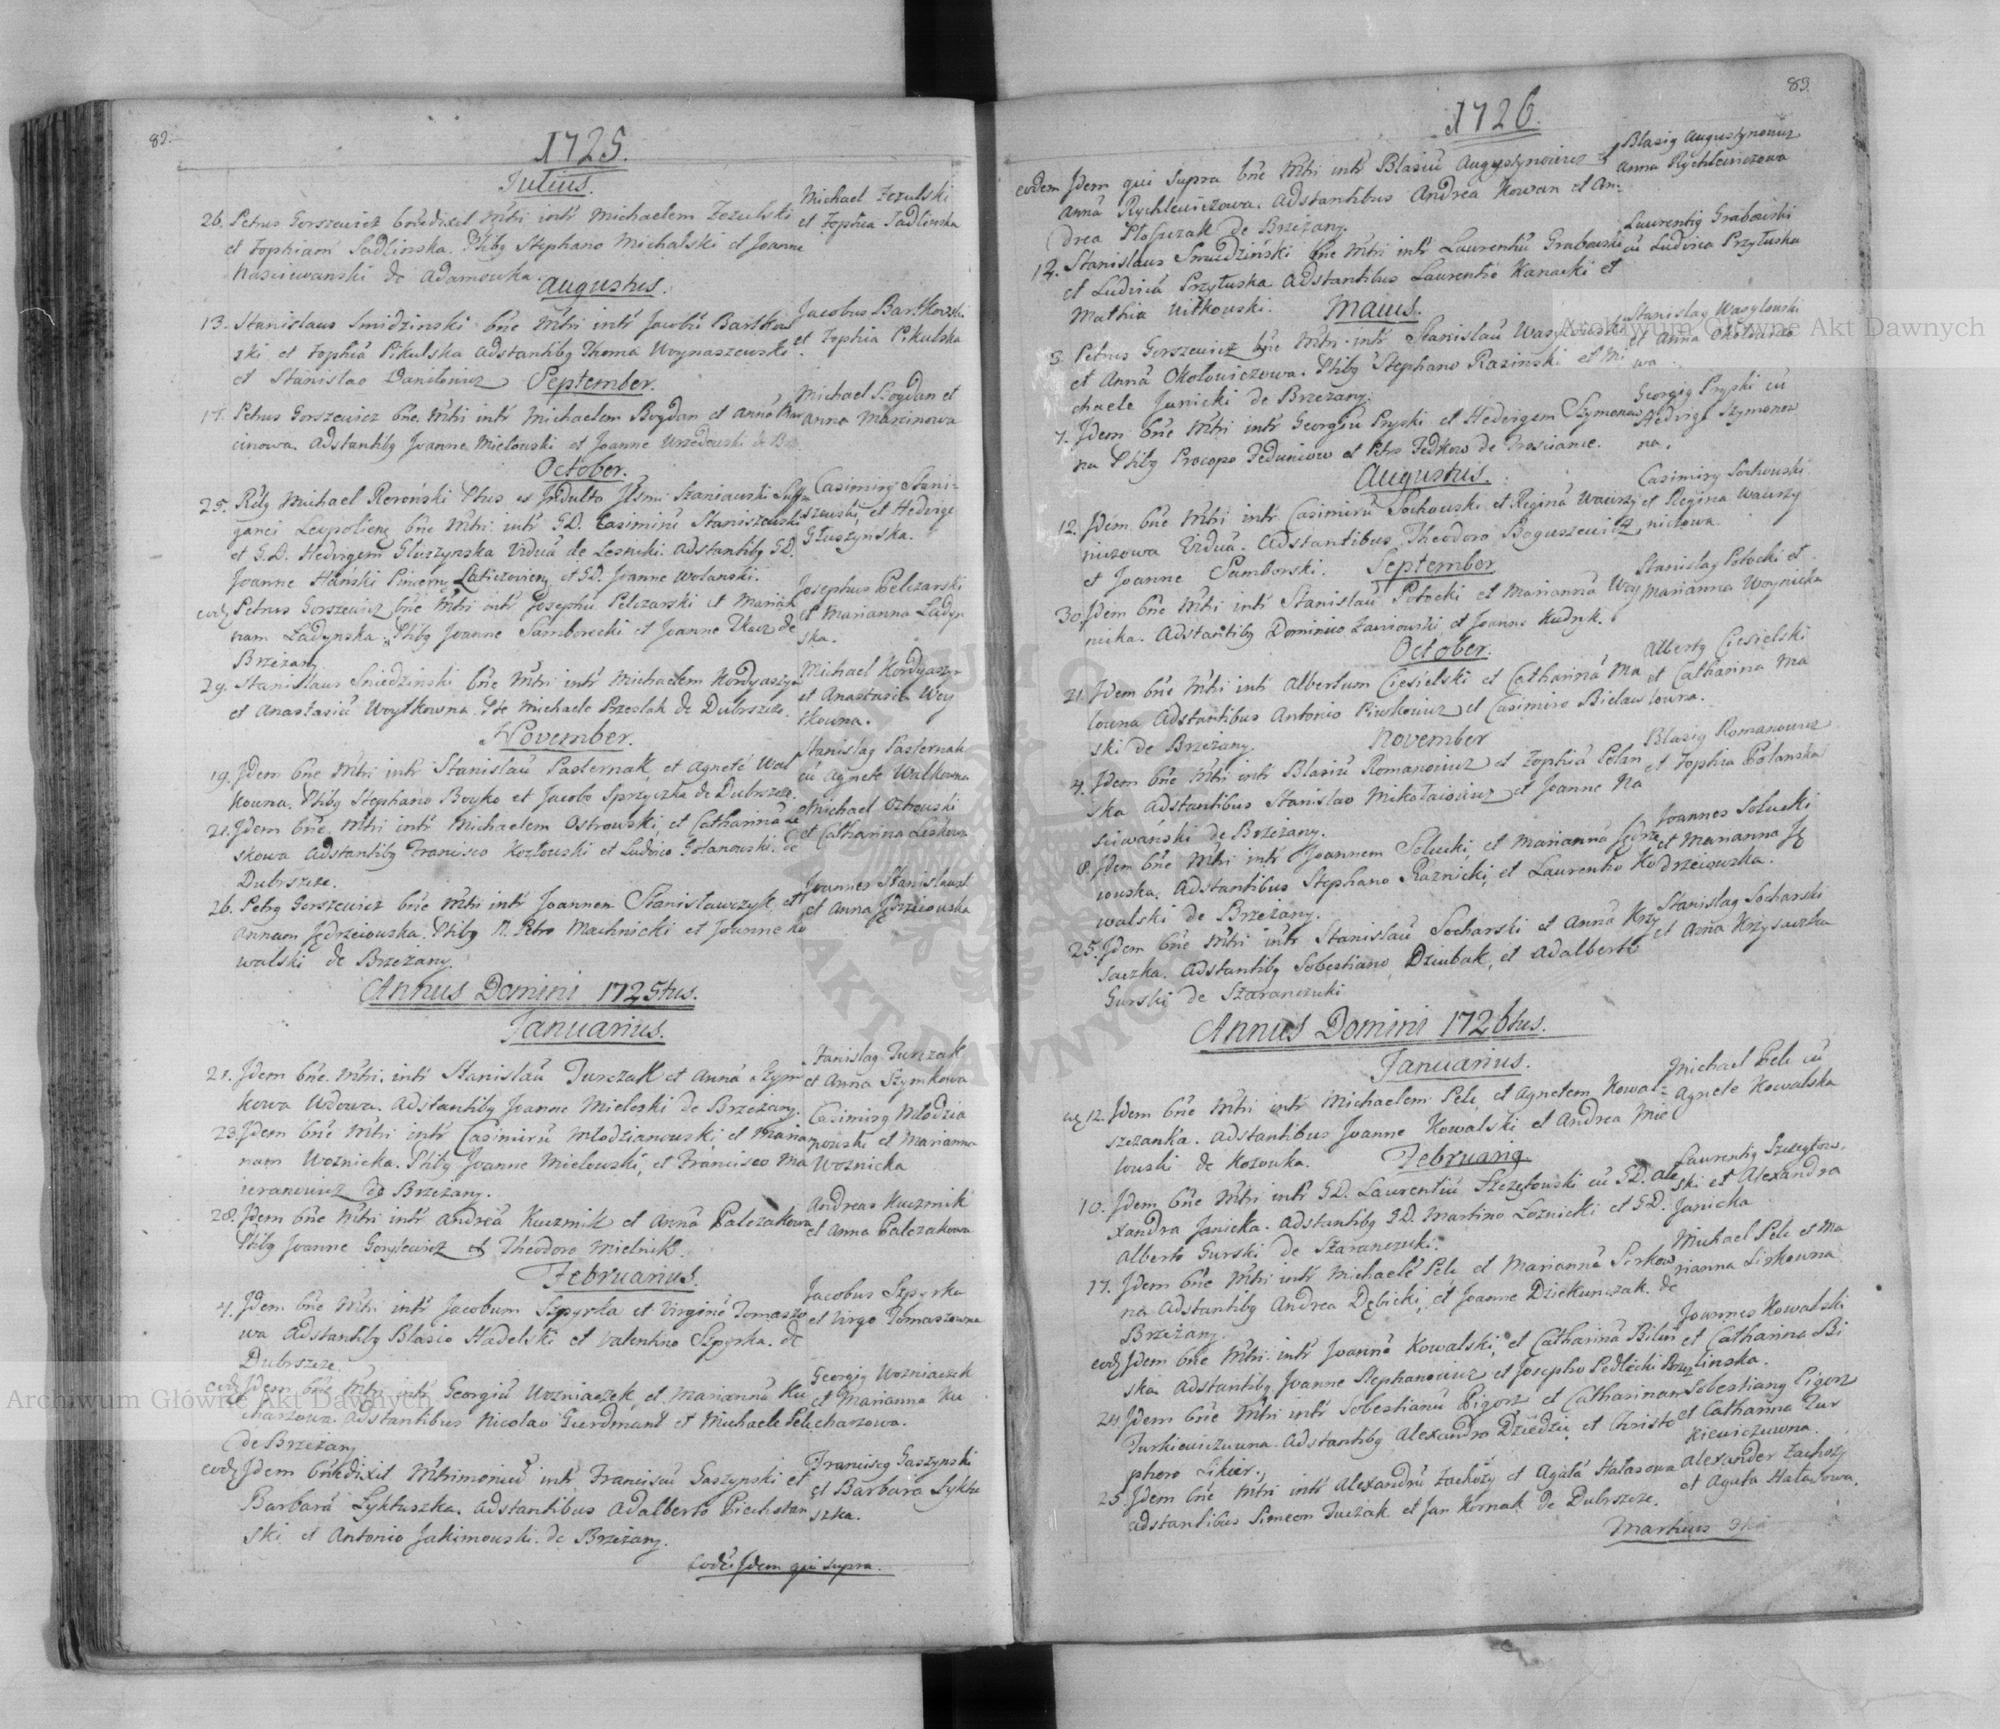 82.
1725.
Julius.
26. Petrus Gorszewicz bnedixit Mtri intr Michaelem Zezulski
et Zophiam Sadlinska. Ptibg Stephano Michalski et Joanne
de Adamowka.
Michael Zezulski
et Zophia Sadlinska
Augustus.
13. Stanislaus Smidzinski bne Mtri intr Jacobu Bartkow
ski et Zophia Pikulska Adstantibg Thoma Woynaszewski
et Stanislao Danilowicz
Jacobus Bartkowski
et Zophia Pikulska
September.
17. Petrus Gorszewicz bne Mtri intr Michaelem Bogdan et Anna Mar
cinowa. Adstantibg Joanne Mielowski et Joanne Urzedowski de Brz
Michael Bogdan et
Anna Marcinowa
October.
25. Rdg Michael Reroński Ptus ex Indulto Jllmi Szaniawski Suffra
ganei Leopoliens bne Mtri intr GD. Casimiru Staniszewski
et G.D. Hedvigem Gluszynska Vidua de Lesniki. Adstantibg GD.
Joanne Hański Pincerng Laticzoviens et GD. Joanne Wolanski.
Casimirg Stani-
szewski et Hedvige
Głuszynska.
eod Petrus Gorszewicz bne Mtri intr Josephu Pelczarski et Marian
nam Ladynska. Ptibg Joanne Samborecki et Joanne Tkacz de
Brzeżany
Josephus Pelczarski
et Marianna Ladyn
ska.
29. Stanislaus Smidzinski bne Mtri intr Michaelem Kordyaszyn
et Anastasia Woytkowna. Pte Michaele Przeslak de Dubrszcze.
Michael Kordyaszyn
et Anastasia Woy
tkowna.
November.
19. Jdem bne Mtri intr Stanislau Pasternak, et Agnete Wal
kowna. Ptibg Stephano Boyko et Jacobo Sprzyczka de Dubrszcze.
Stanislag Pasternak
cu Agnete Walkowna
21. Jdem bne Mtri intr Michaelem Ostrowski, et Catharina Le
skowa Adstantibg Francisco Kozłowski et Ludvico Golanowski. de
Dubrszcze.
Michael Ostrowski
et Catharina Leskowa
26. Petrg Gorszewicz bne Mtri intr Joannem Stanisławczyk, et
Annam Jędrzeiowska. Ptibg N. Petro Machnicki et Joanne Ko
walski de Brzeżany.
Joannes Stanisławcz
et Anna Jędrzeiowska
Annus Domini 1725tus.
Januarius.
21. Jdem bne. Mtri. intr Stanislau Turczak et Anna Szym
kowa Wdowa. Adstantibg Joanne Mieleski de Brzeżany.
Stanislag Turczak
et Anna Szymkowa
23. Jdem bne Mtri intr Casimiru Młodzianowski et Marian
nam Woznicka. Ptibg Joanne Mielowski, et Francisco Ma
ieranowicz de Brzeżany.
Casimirg Młodzia
nowski et Marianna
Woznicka
28. Jdem bne Mtri intr Andrea Kuczmik et Anna Palczakowa
Ptibg Joanne Gorylewicz et Theodoro Mielnik.
Andreas Kuczmik
et Anna Palczakowa
Februarius.
4. Jdem bne Mtri intr Jacobum Szpyrka et Virgine Tomaszo
wa Adstantibg Blasio Hadelski et Valentino Szpyrka. de
Dubrszcze.
Jacobus Szpyrka
et Virgo Tomaszowna
eod Jdem bne Mtri intr Georgiu Wozniaczek et Marianna Ku
charzowa. Adstantibus Nicolao Gurdman et Michaele Pele
de Brzeżany
Georgig Wozniaczek
et Marianna Ku
charzowa.
eod Jdem bnedixit Mtrimoniu intr Franciscu Gaszynski et
Barbara Lyktuszka. Adstantibus Adalberto Piechotan
ski et Antonio Jakimowski. de Brzeżany.
Franciscg Gaszynski
et Barbara Lyktu
szka.
eode Jdem qui supra.
83.
1726.
eodem Jdem qui supra bne Mtri intr Blasiu Augustynowicz et
Anna Rychlewiczowa. Adstantibus Andrea Kowan et An-
drea Ptoszczak de Brzeżany.
Blasig Augustynowicz
Anna Rychlewiczowa
12. Stanislaus Smidziński bne Mtri intr Laurentiu Grabowski
et Ludvica Przyłuska Adstantibus Laurentio Kanacki et
Mathia Witkowski.
Laurentig Grabowski
cu Ludvica Przyłuska
Maius.
3. Petrus Gorszewicz bne Mtri intr Stanislau Wasylowski
et Anna Okołowiczowa. Ptibg Stephano Razinski et Mi
chaele Junicki de Brzeżany.
Stanislag Wasylowski
et Anna
wa
7. Jdem bne Mtri intr Georgiu Pryski et Hedvigem Szymonow
na Ptibg Procopo Feduniow et Petro Fedkow de Trościanie.
Georgig Pryski cu
Hedvige Szymonow
na.
Augustus.
12. Jdem bne Mtri intr Casimiru Sochowski et Regina Wawrzy
niczowa Vidua. Adstantibus Theodoro Boguszewicz
et Joanne Samborski.
Casimirg Sochowski
et Regina Wawrzy
niczowa.
September
30. Jdem bne Mtri intr Stanislau Potocki et Marianna Woy
nicka. Adstantibg Dominico Zawiowski et Joanne Kudryk.
Stanislag Potocki et
Marianna Woynicka
October.
21. Jdem bne Mtri intr Albertum Ciesielski et Catharina Ma
lowna Adstantibus Antonio Piwkowicz et Casimiro Bielaw
ski de Brzeżany.
Albertg Ciesielski
et Catharina Ma
lowna.
November
4. Jdem bne Mtri intr Blasiu Romanowicz et Zophia Polan
ska Adstantibus Stanislao Mikołaiewicz et Joanne Na
siwański de Brzeżany.
Blasig Romanowicz
et Zophia Polanska
8. Jdem bne Mtri intr Joannem Solucki et Marianna Jędrze
iowska. Adstantibus Stephano Raznicki, et Laurentio Ko
walski de Brzeżany.
Joannes Solucki
et Marianna Ję
drzeiowska.
25. Jdem bne Mtri intr Stanislau Socharski et Anna Krzy
saczka. Adstantibg Sobestiano Dziubak, et Adalberto
Gurski de Szaranczuki
Stanislag Socharski
et Anna Krzysaczka
Annus Domini 1726tus.
Januarius.
12. Jdem bne Mtri intr Michaelem Pele et Agnetem Kowal-
szczanka. Adstantibus Joanne Kowalski et Andrea Mie
lowski de Kozowka.
Michael Pele cu
Agnete Kowalska
Februarig.
10. Jdem bne Mtri intr GD. Laurentiu Szczytowski cu GD. Ale
xandra Janicka. Adstantibg GD. Martino Loznicki et GD.
Alberto Gurski de Szaranczuki.
Laurentig Szczytow-
ski et Alexandra
Janicka
17. Jdem bne Mtri intr Michaele Pele et Marianna Sirkow
na Adstantibg Andrea Dębicki, et Joanne Dziekunczak. de
Brzeżany.
Michael Pele et Ma
rianna Sirkowna
eod Jdem bne Mtri intr Joanne Kowalski, et Catharina Bilin
ska Adstantibg. Joanne Stephanowicz et Josepho Pedlecki Brzez
Joannes Kowalski
et Catharina Bi
linska.
24. Jdem bne Mtri intr Sobestianu Pigorz et Catharinam
Turkiewiczowna. Adstantibg Alexandro Dziedzic et Christo
phoro Likier.
Sobestiang Pigorz
et Catharina Tur
kiewiczowna.
25. Jdem bne Mtri intr Alexandru Zachoży et Agata Hałasowa
Adstantibus Simeon Tuczak et Jan Kornak de Dubrszcze.
Alexander Zachoży
et Agata Hałasowa.
Martius
Archiwum Główne Akt Dawnych
Archiwum Główne Akt Dawnych